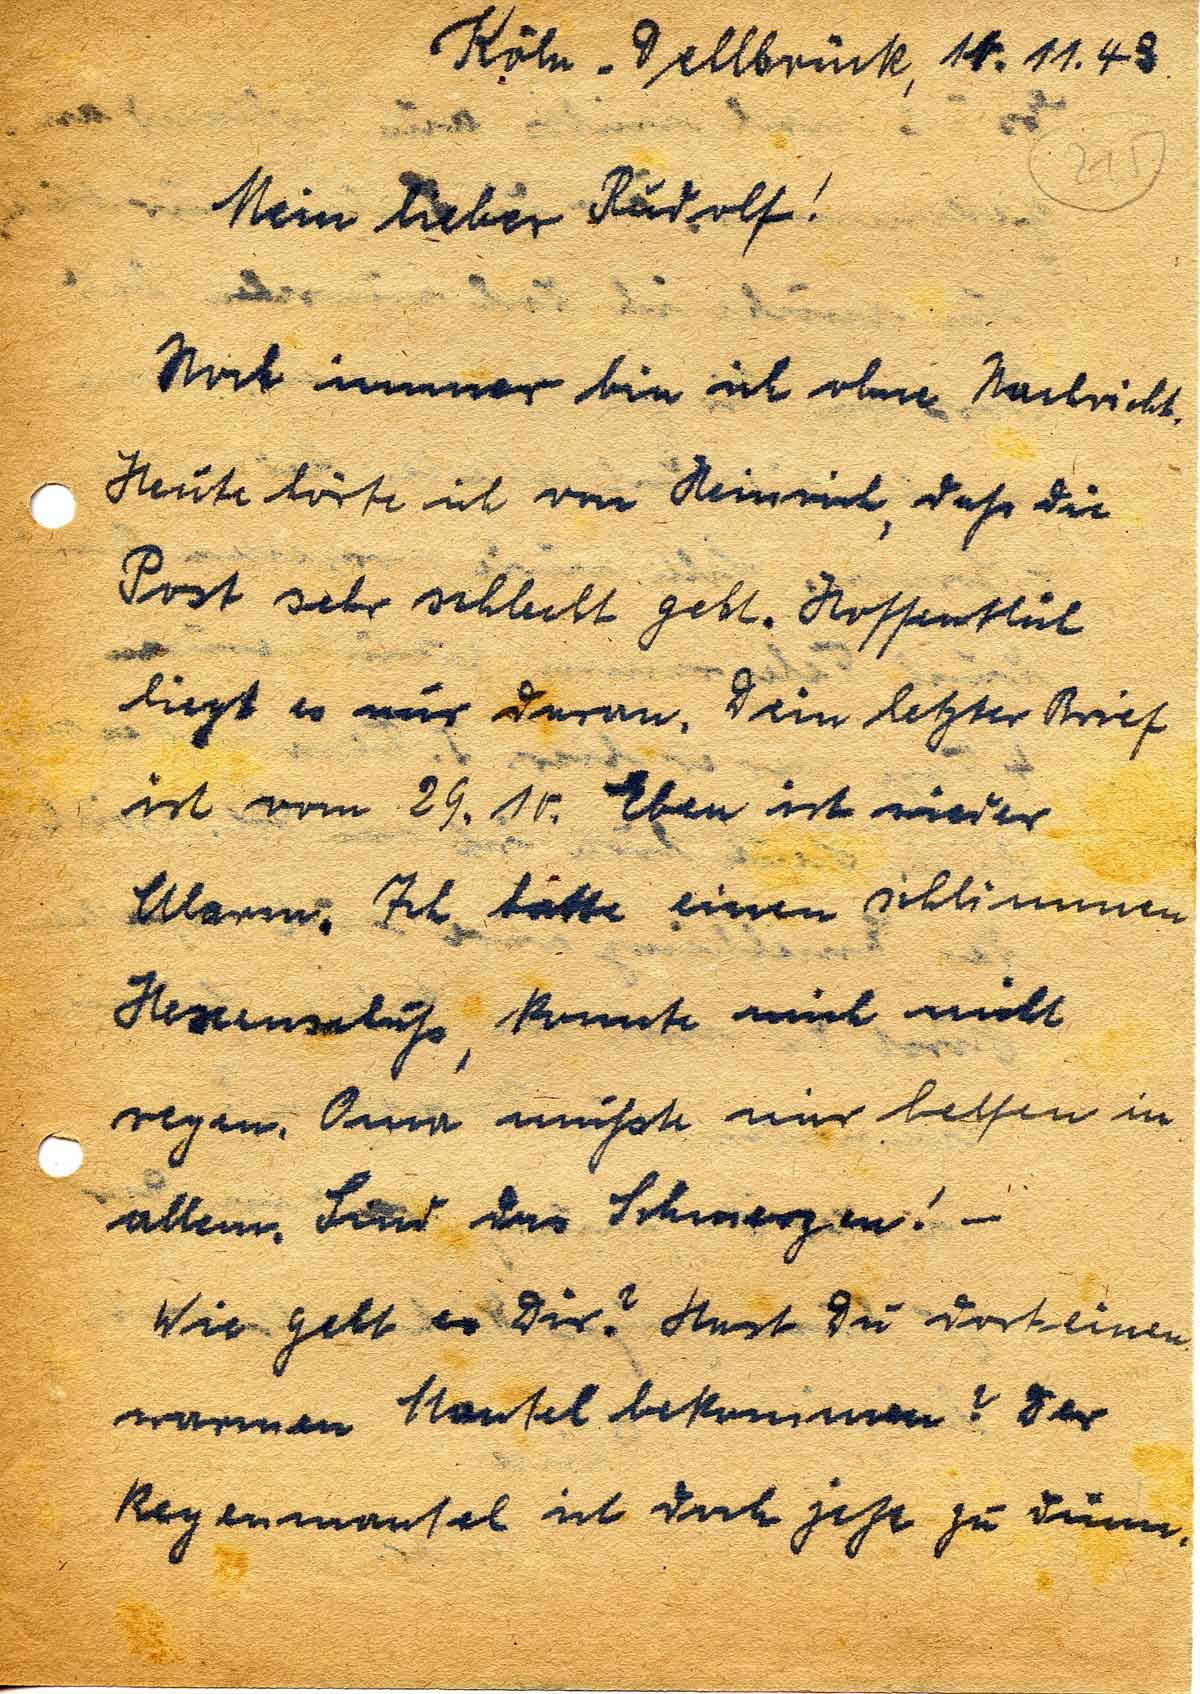 Köln-Dellbrück, 10.11.43
215
Mein lieber Rudolf!
Noch immer bin ich ohne Nachricht.
Heute hörte ich von Heinrich, daß die
Post sehr schlecht geht. Hoffentlich
liegt es nur daran. Dein letzter Brief
ist vom 29.10. Eben ist wieder
Alarm. Ich hatte einen schlimmen
Hexenschuß, konnte mich nicht
regen. Oma mußte mir helfen in
allem. Sind das Schmerzen! —
Wie geht es Dir? Hast Du dort einen
warmen Mantel bekommen? Der
Regenmantel ist doch jetzt zu dünn.